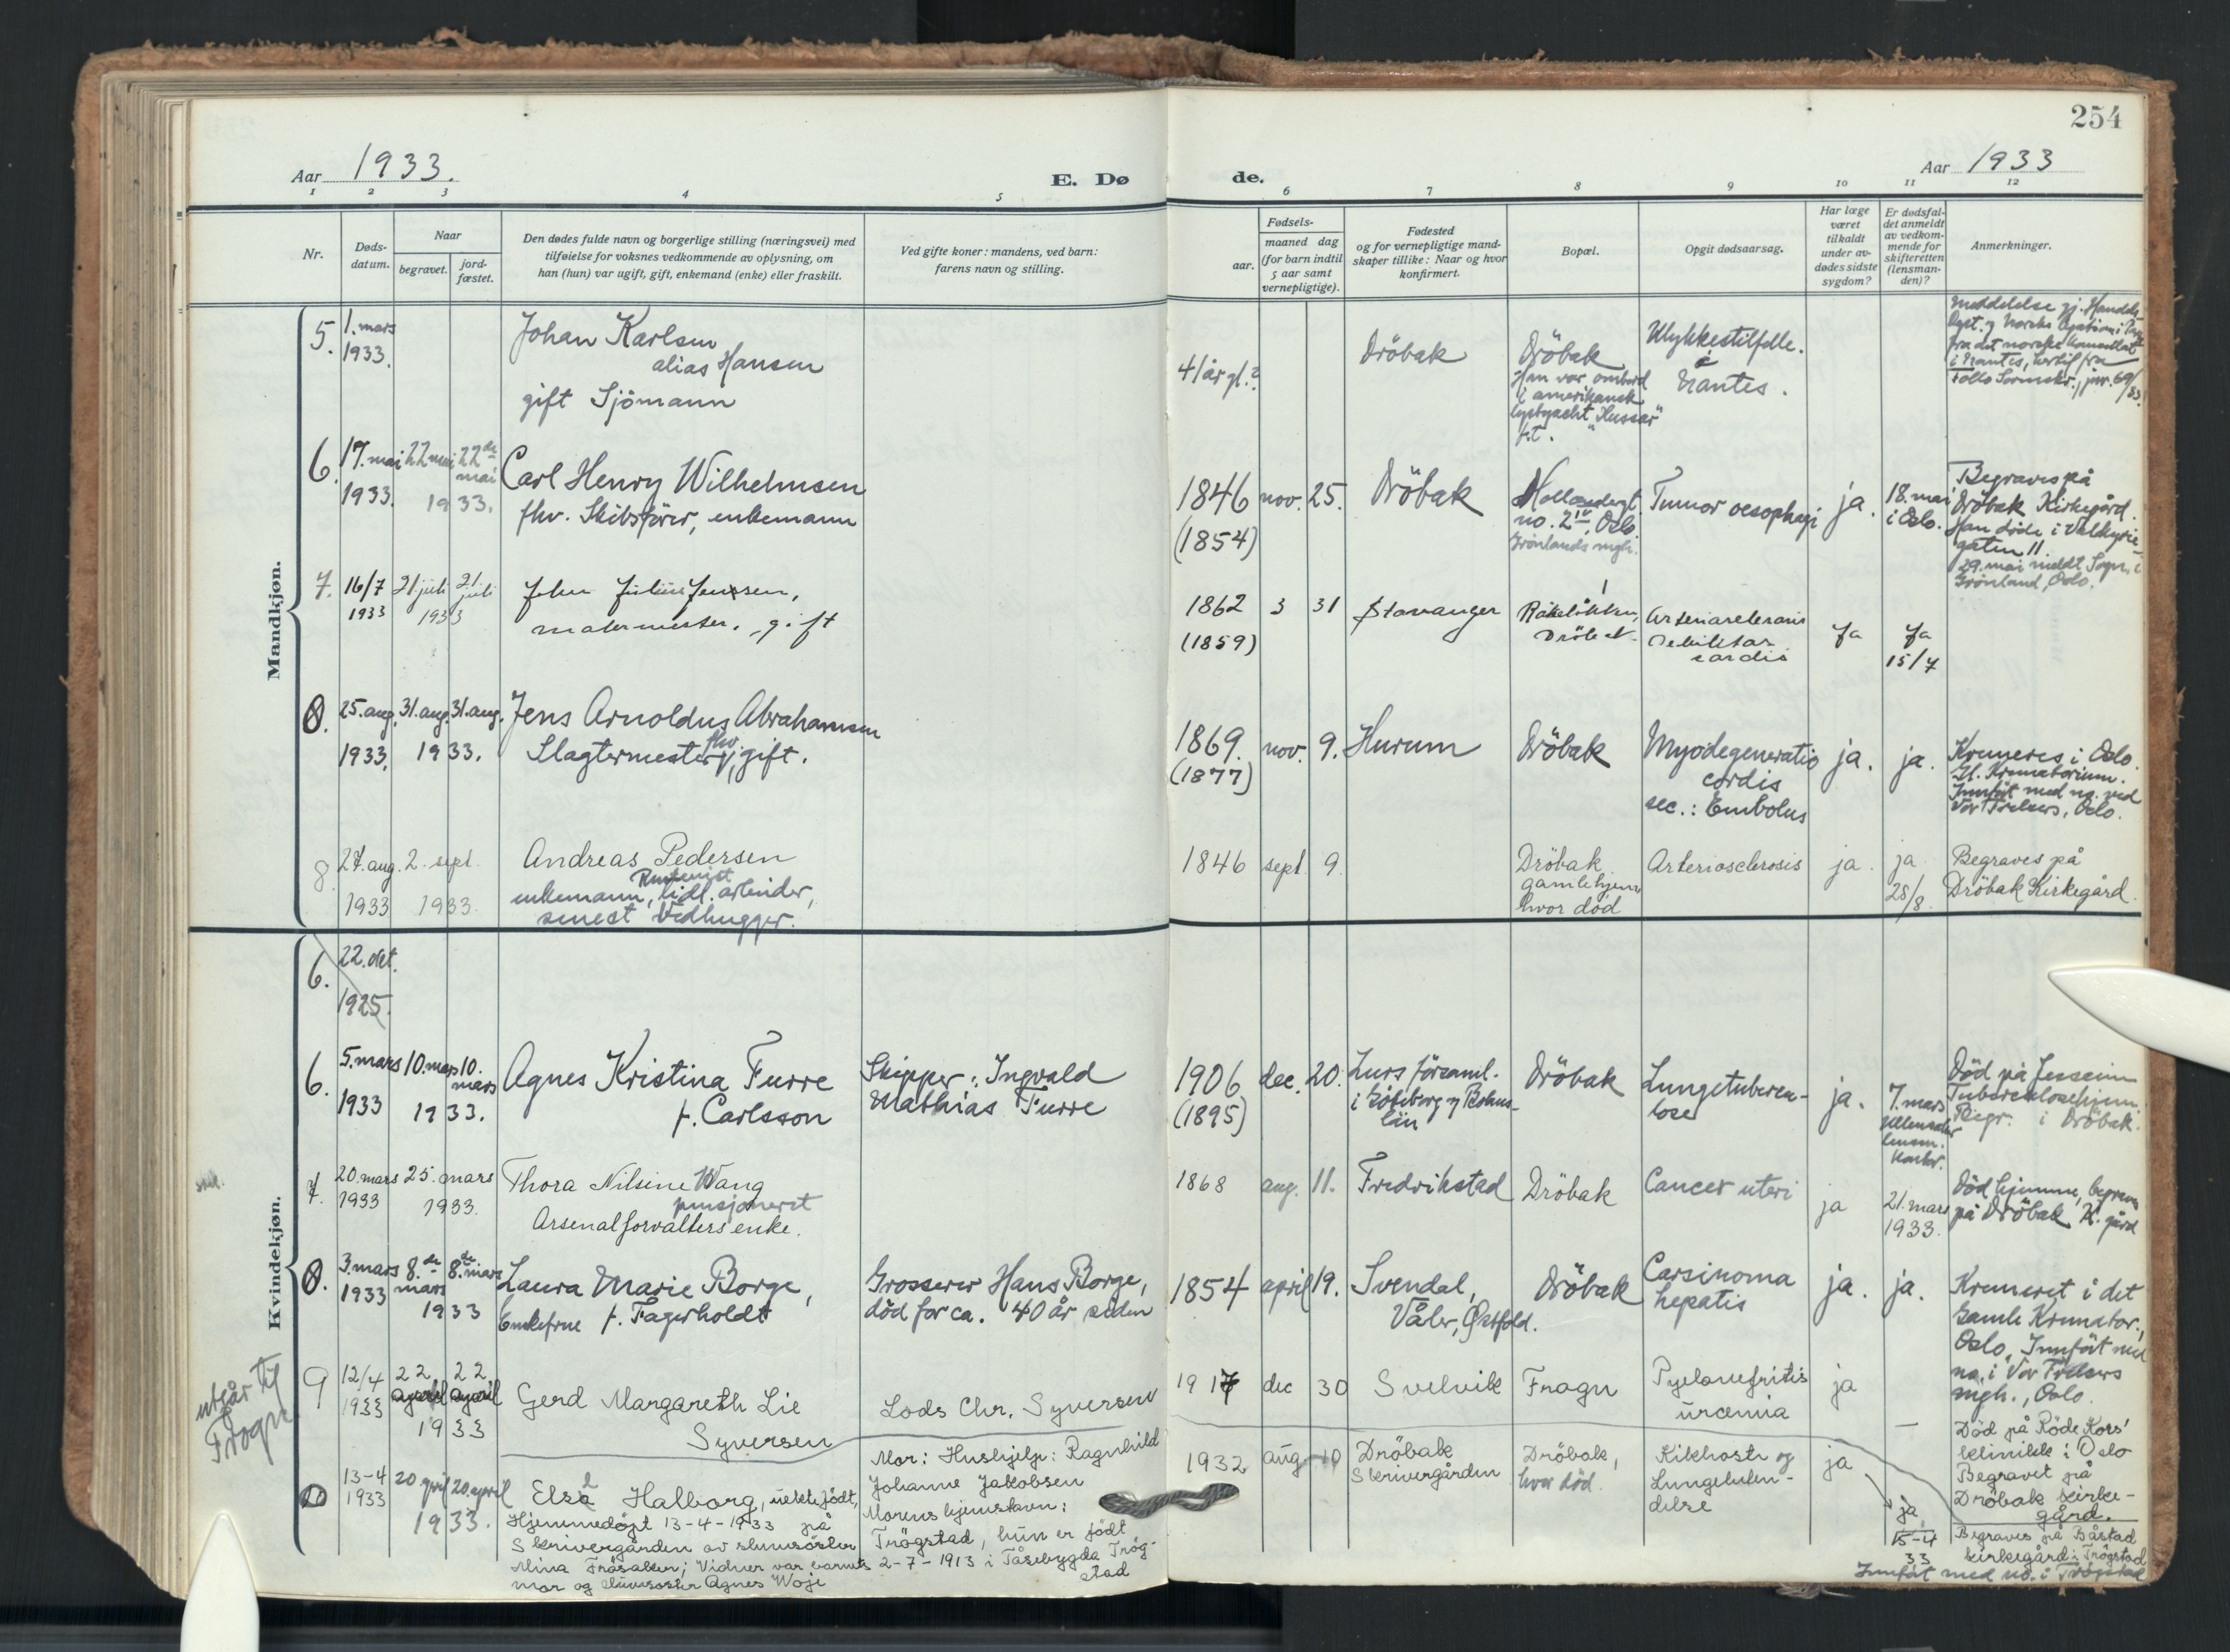 254
Aar 1933.
E. Dø
de.
Aar 1933
1 2 3 4 5 6 7 8 9 10 11 12
Nr.
Døds-
datum.
Naar
begravet.
jord-
fæstet.
Den dødes fulde navn og borgerlige stilling (næringsvei) med
tilføielse for voksnes vedkommende av oplysning, om
han (hun) var ugift, gift, enkemand (enke) eller fraskilt.
Ved gifte koner: mandens, ved barn:
farens navn og stilling.
Fødsels-
aar.
maaned dag
(for barn indtil
5 aar samt
vernepligtige).
Fødested
og for vernepligtige mand-
skaper tillike: Naar og hvor
konfirmert.
Bopæl.
Opgit dødsaarsag.
Har læge
været
tilkaldt
under av-
dødes sidste
sygdom?
Er dødsfal-
det anmeldt
av vedkom-
mende for
skifteretten
(lensman-
den)?
Anmerkninger.
Mandkjøn.
5.
1. mars
1933.
Johan Karlsen
alias Hansen
gift Sjömann
41 år gl.?
Dröbak
Dröbak
Han var ombord
i amerikansk
lystyacht "Hussar"
p.t.
Ulykkestilfelle.
i
Nantes.
Meddelelse gj. Handels-
fra det norske Konsulat
i Nantes,
Follo Sorenskr., jnr. 69/33.
6.
17. mai 22 mai 22de mai
1933. 1933.
Carl Henry Wilhelmsen
fhv. Skibsförer, enkemann
1846 nov. 25.
(1854)
Dröbak
Hollendergt.
no. 2IV, Oslo.
Grönlands mgh.
Tumor oesophagi
ja.
18. mai
i Oslo.
Begraves på
Dröbak Kirkegård.
Han döde i Valkyrie-
gaten 11.
29. mai meldt Sogn. i
Grönland, Oslo.
7.
16/7 21. juli 21. juli
1933 1933
John Julius Jenssen,
malermester. gift
1862 3 31
(1859)
Stavanger
Dröbak.
Debilitas
cordis
Ja
Ja
15/7
8.
25. aug. 31. aug. 31. aug.
1933. 1933.
Jens Arnoldus Abrahamsen
Slagtermester, fhv. gift.
1869. nov. 9.
(1877)
Hurum
Dröbak
Myodegeneratio
cordis
sec.: Embolus
ja.
ja.
Kremeres i Oslo.
Gl. Krematorium.
Innfört med no. ved
Vor Frelsers, Oslo.
8
27. aug. 2. sept.
1933 1933.
Andreas Pedersen
enkemann, tidl. arbeider,
senest Vedhugger.
1846 sept. 9.
Dröbak
gamlehjem
hvor död
Arteriosclerosis
ja.
ja
28/8.
Begraves på
Dröbak Kirkegård.
Kvindekjøn.
6.
22. okt.
1925.
6.
5. mars 10. mars 10. mars
1933 1933.
Agnes Kristina Furre
f. Carlsson
Skipper: Ingvald
Mathias Furre
1906 dec. 20.
(1895)
Zurs församl.
i Göteborg og Bohus-
län
Dröbak
Lungetuberku-
lose
ja.
7. mars
Ullensaker
lensm.
kontor.
Död på Jessheim
Tuberkulosehjem.
Begr. i Dröbak.
7.
20. mars 25. mars
1933 1933.
Thora Nilsine Wang
pensjonert
Arsenalforvalters enke.
1868 aug. 11.
Fredrikstad
Dröbak
Cancer uteri
ja
21. mars
1933.
Död hjemme, begraves
på Dröbak K. gård
8.
3. mars 8.de mars 8.de mars
1933 1933
Laura Marie Borge,
Enkefrue f. Fagerholdt
Grosserer Hans Borge,
död for ca. 40 år siden
1854 april 19.
Svendal,
Våler, Østfold.
Dröbak
Carsinoma
hepatis
ja.
ja.
Kremeret i det
Gamle Kremator.,
Oslo, Innfört med
no. i Vor Frelsers
mgh., Oslo.
utgår til
Frogn
9
12/4 22 22
1933 april april
1933
Gerd Margareth Lie
Syversen
Lods Chr. Syversen
1917 dec 30
Svelvik
Frogn
Pyelonefritis
uremia
ja
—
Död på Röde Kors'
klinikk i Oslo
Begravet på
Dröbak kirke-
gård.
10
13-4 20. april 20. april
1933 1933.
Elsa Halborg, uekte född,
Hjemmedöpt 13-4-1933 på
Skrivergården av sknsöster
Mina Fråsaker; Vidner var barnets
mor og Agnes Woje
Mor: Hushjelp: Ragnhild
Johanne Jakobsen
Morens hjemstavn:
Trögstad, hun er född
2-7-1913 i Båstadbygda Trög-
stad
1932 aug 10
Dröbak
Skrivergården
Dröbak,
hvor död.
Kikhoste og
Lungebeten-
delse
ja
ja.
15-4
33
Begraves på Båstad
kirkegård i Trögstad
Innfört med no. i Trögstad